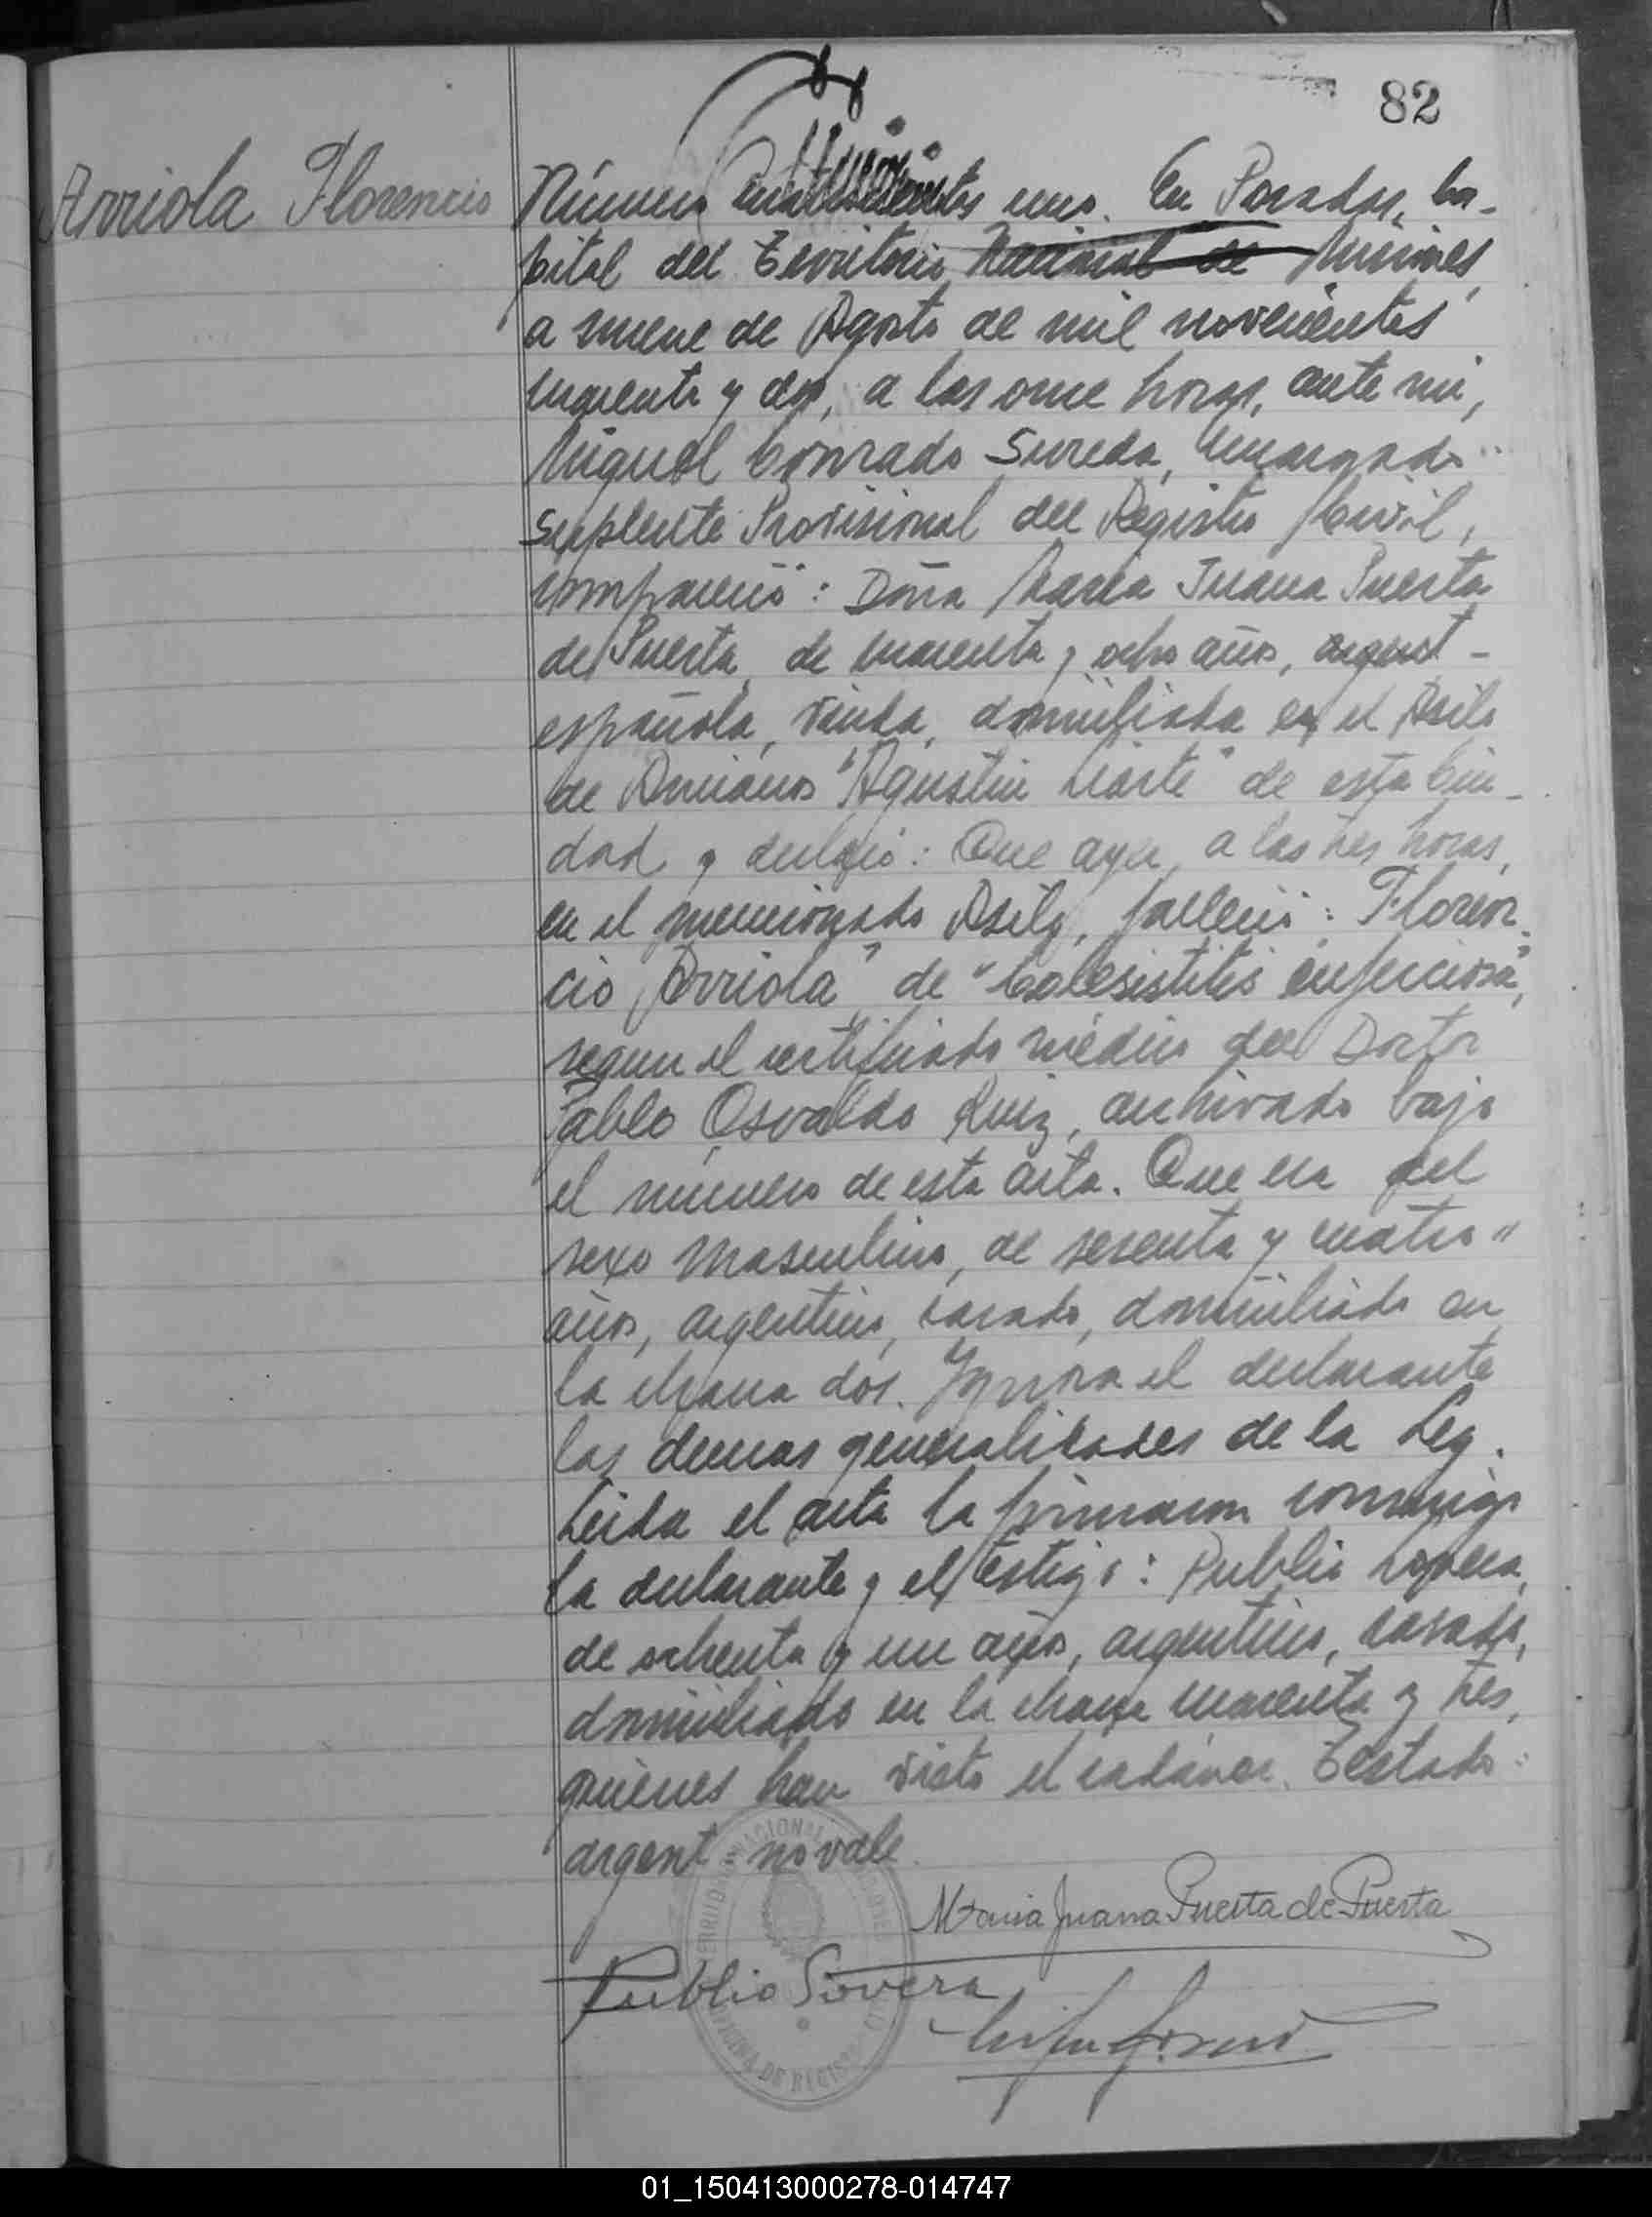 82
Arriola Florencio
Número cuatrocientos uno. En Posadas, Ca-
pital del Territorio Nacional de Misiones,
a nueve de Agosto de mil novecientos
cuarenta y dos, a las once horas, ante mi,
Miguel Conrado Sureda, Encargado
Suplente Provisional del Registro Civil,
compareció: Doña Maria Juana Puerta
de Puerta, de cuarenta y ocho años, argent-
española, viuda, domiciliada en el Asilo
de Ancianos "Agustin Uarte" de esta Ciu-
dad y declaró: Que ayer, a las tres horas,
en el mencionado Asilo, falleció: "Floren-
cio Arriola" de "Colesistitis infecciosa",
segun el certificado médico del Doctor
Pablo Osvaldo Ruiz, archivado bajo
el número de esta acta. Que era del
sexo masculino, de sesenta y cuatro
años, argentino, casado, domiciliado en
la chacra dos. Ignora el declarante
las demas generalidades de la Ley.
Leida el acta la firmaron conmigo
la declarante y el testigo: Publio
de ochenta y un años, argentino, casado,
domiciliado en la chacra cuarenta y tres,
quienes han visto el cadáver. Testado:
argent no vale.
Maria Juana Puerta de Puerta
Publio Sovera
01_150413000278-014747